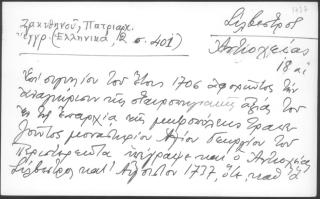 Ζακυθηνοῦ, Πατριαρχ.
ἔγγρ. (Ἑλληνικά, 2 σ. 401)
Σίλβεστρος
Ἀντιοχείας
18 αἰ
Ἐπὶ σιγιλλίου τοῦ ἔτους 1706 ἀφορῶντος τὴν
ἀναγνώρισιν τῆς σταυροπηγιακῆς ἀξίας τοῦ
ἐν τῇ ἐπαρχίᾳ τῆς μητροπόλεως
μοναστηρίου Ἁγίου Γεωργίου τοῦ
Περιστερεώτα ὑπέγραψε καὶ ὁ Ἀντιοχείας
Σίλβεστρος κατ' Αὔγουστον 1737, ὅτε, καθ' ἃ